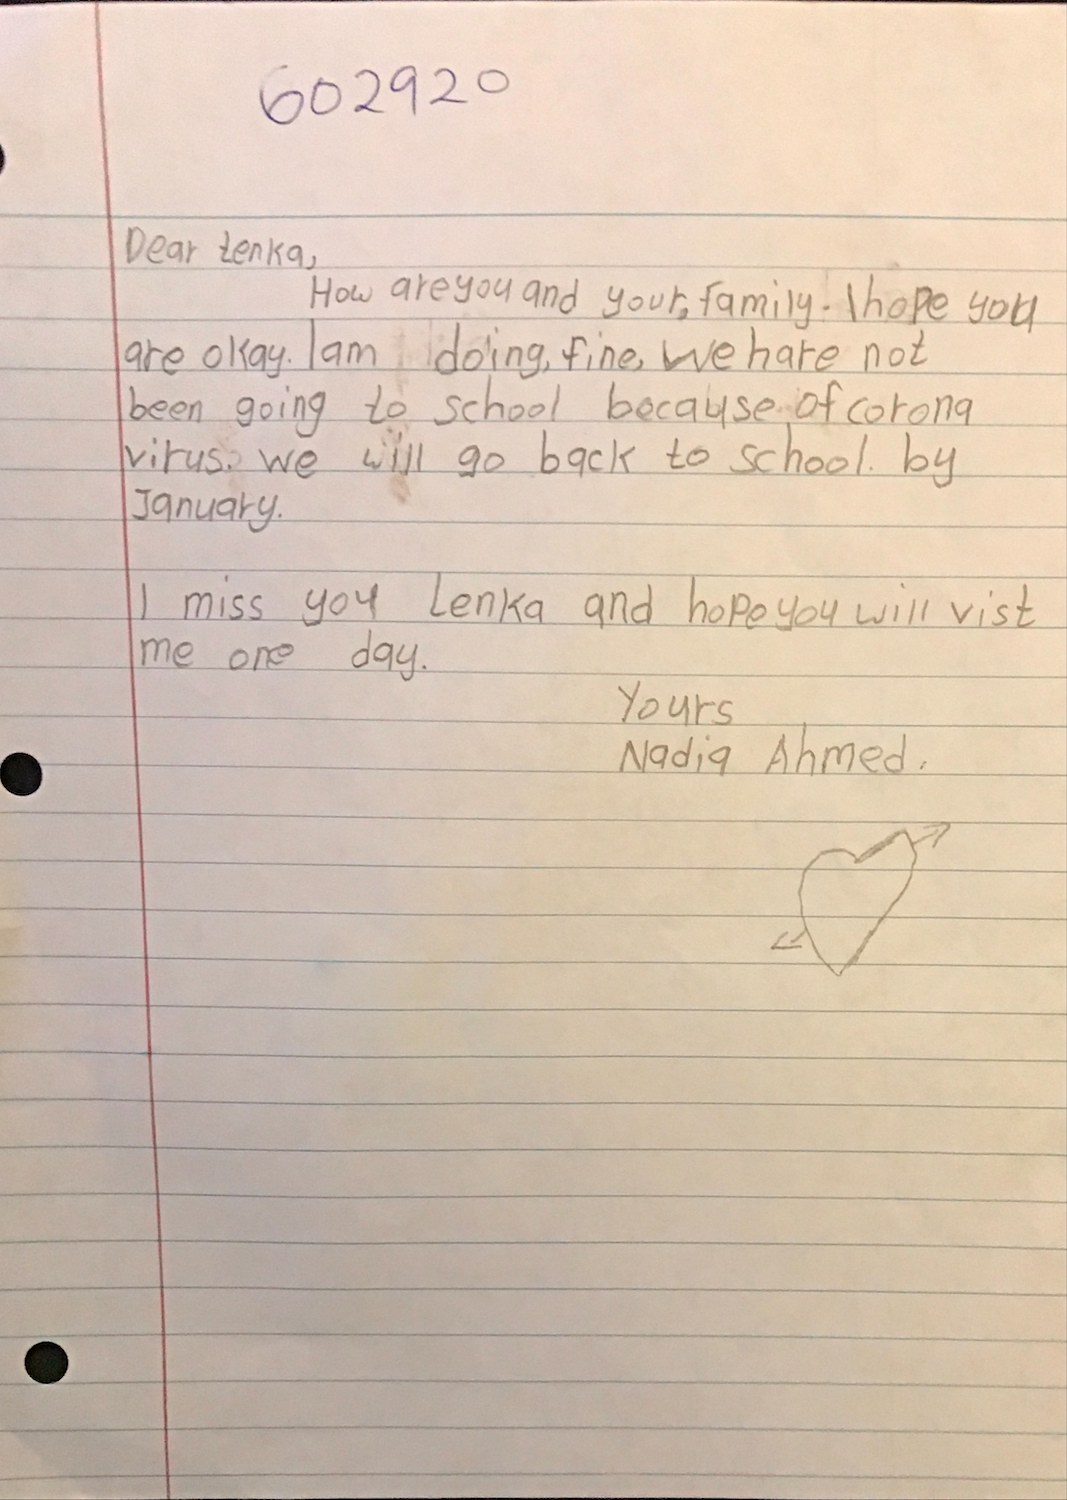 602920
Dear Lenka,
How are you and your, family. I hope you
are okay. I am doing, fine, we have not
been going to school because of corona
virus. we will go back to school. by
January.
I miss you Lenka and hope you will vist
me one day.
Yours
Nadia Ahmed.